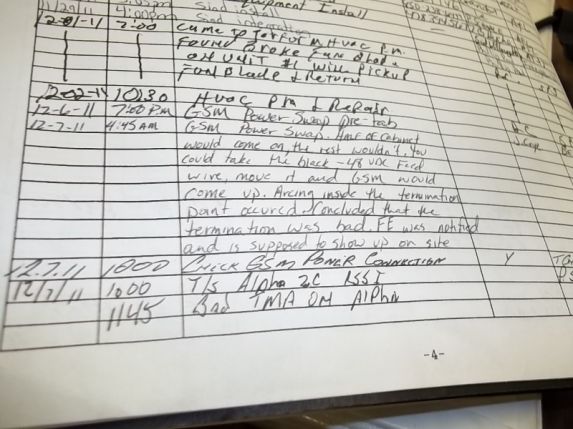 11/29/11 4:00pm Siad integration
Equipment Install
12-01-11 2:00 Came to perform Hvac P.M.
Found Broke Fan Blade
on Unit #1 will Pickup
Fan Blade & Return
12-02-11 10:30 Hvac Pm & Repair
12-6-11 7:00 P.m GSM Power Swap Pre-fab
12-7-11 4:45 AM GSM Power Swap. Half of cabinet
would come on, the rest wouldn't. You
could take the black -48 VDC Feed
wire, move it and GSM would
Come up. Arcing inside the termination
point occured. Concluded that the
termination was bad. FE was notified
and is supposed to show up on site
12.7.11 1000 CHECK GSM POWER CONNECTION Y
12/7/11 1000 T/S Alpha 2C RSSI
1145 Bad TMA ON Alpha
-4-